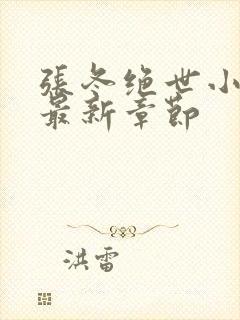 張冬绝世小
最新章節
洪雷